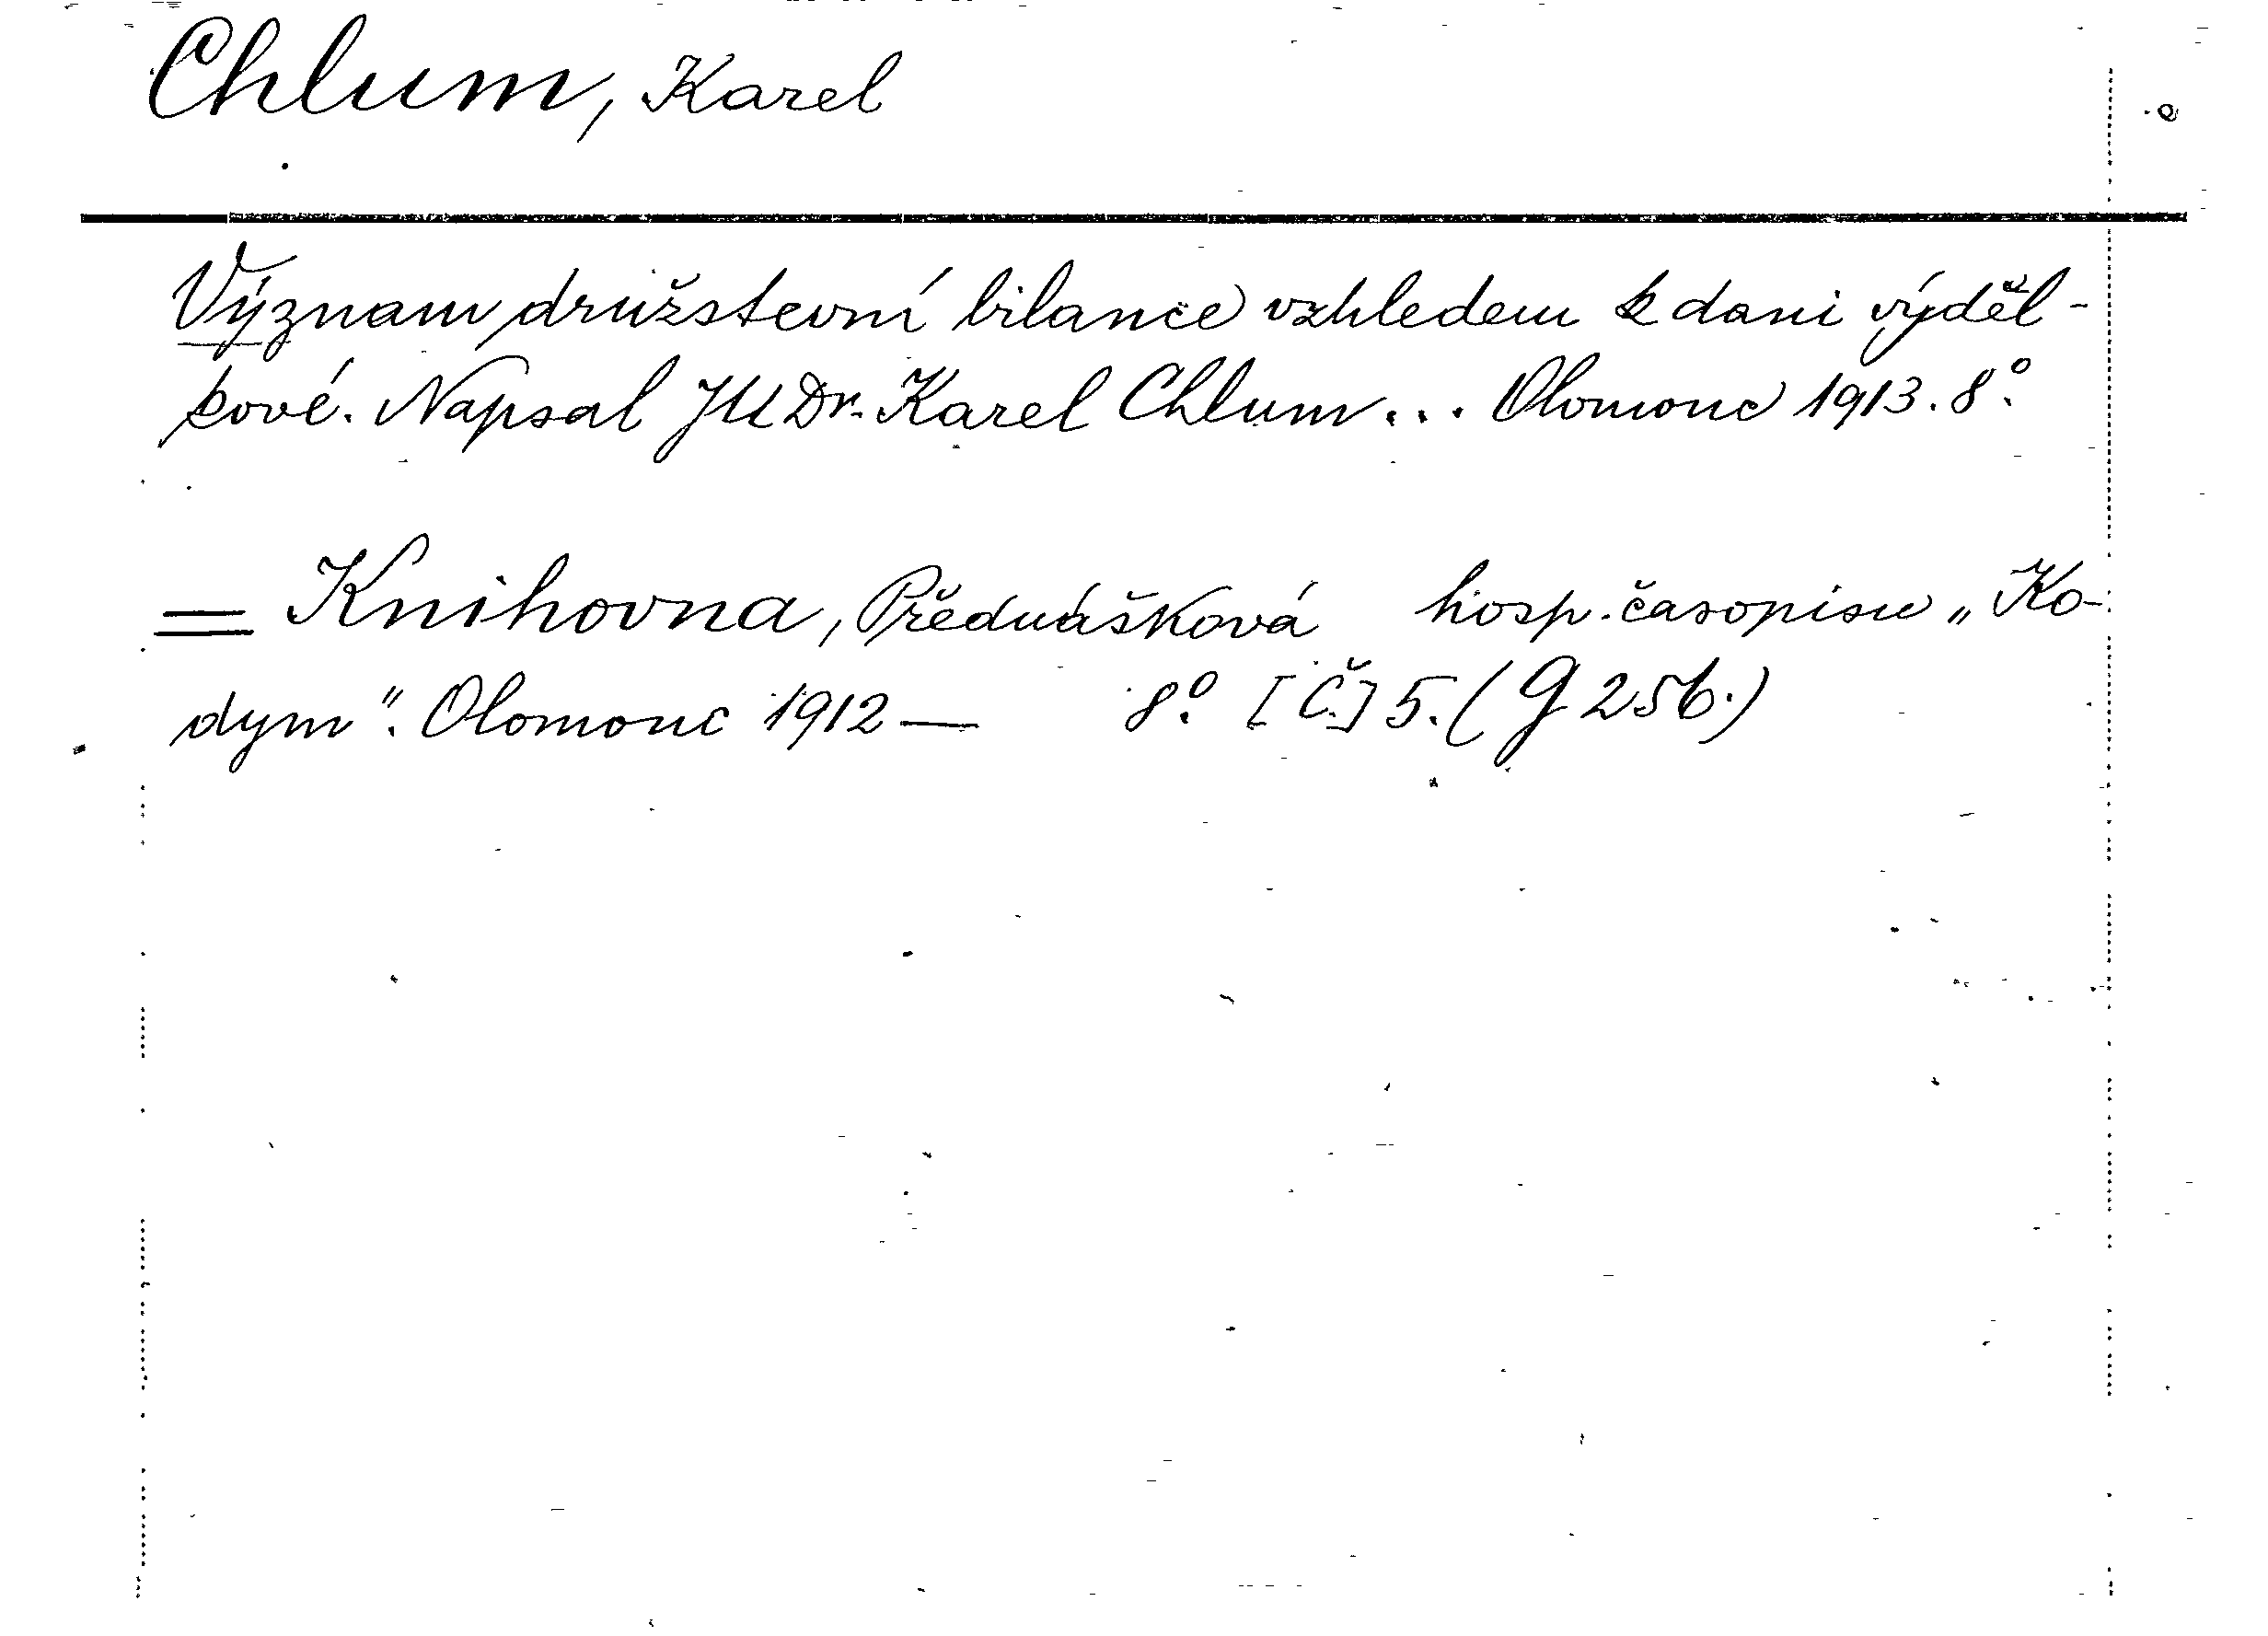 Chlum, Karel
Význam družstevní bilance vzhledem k dani výděl-
kové. Napsal JUDr. Karel Chlum... Olomouc 1913. 8º.
= Knihovna, Přednášková hosp. časopisu „Ko-
dym“. Olomouc 1912— 8º. [Č.] 5. (G 256.)